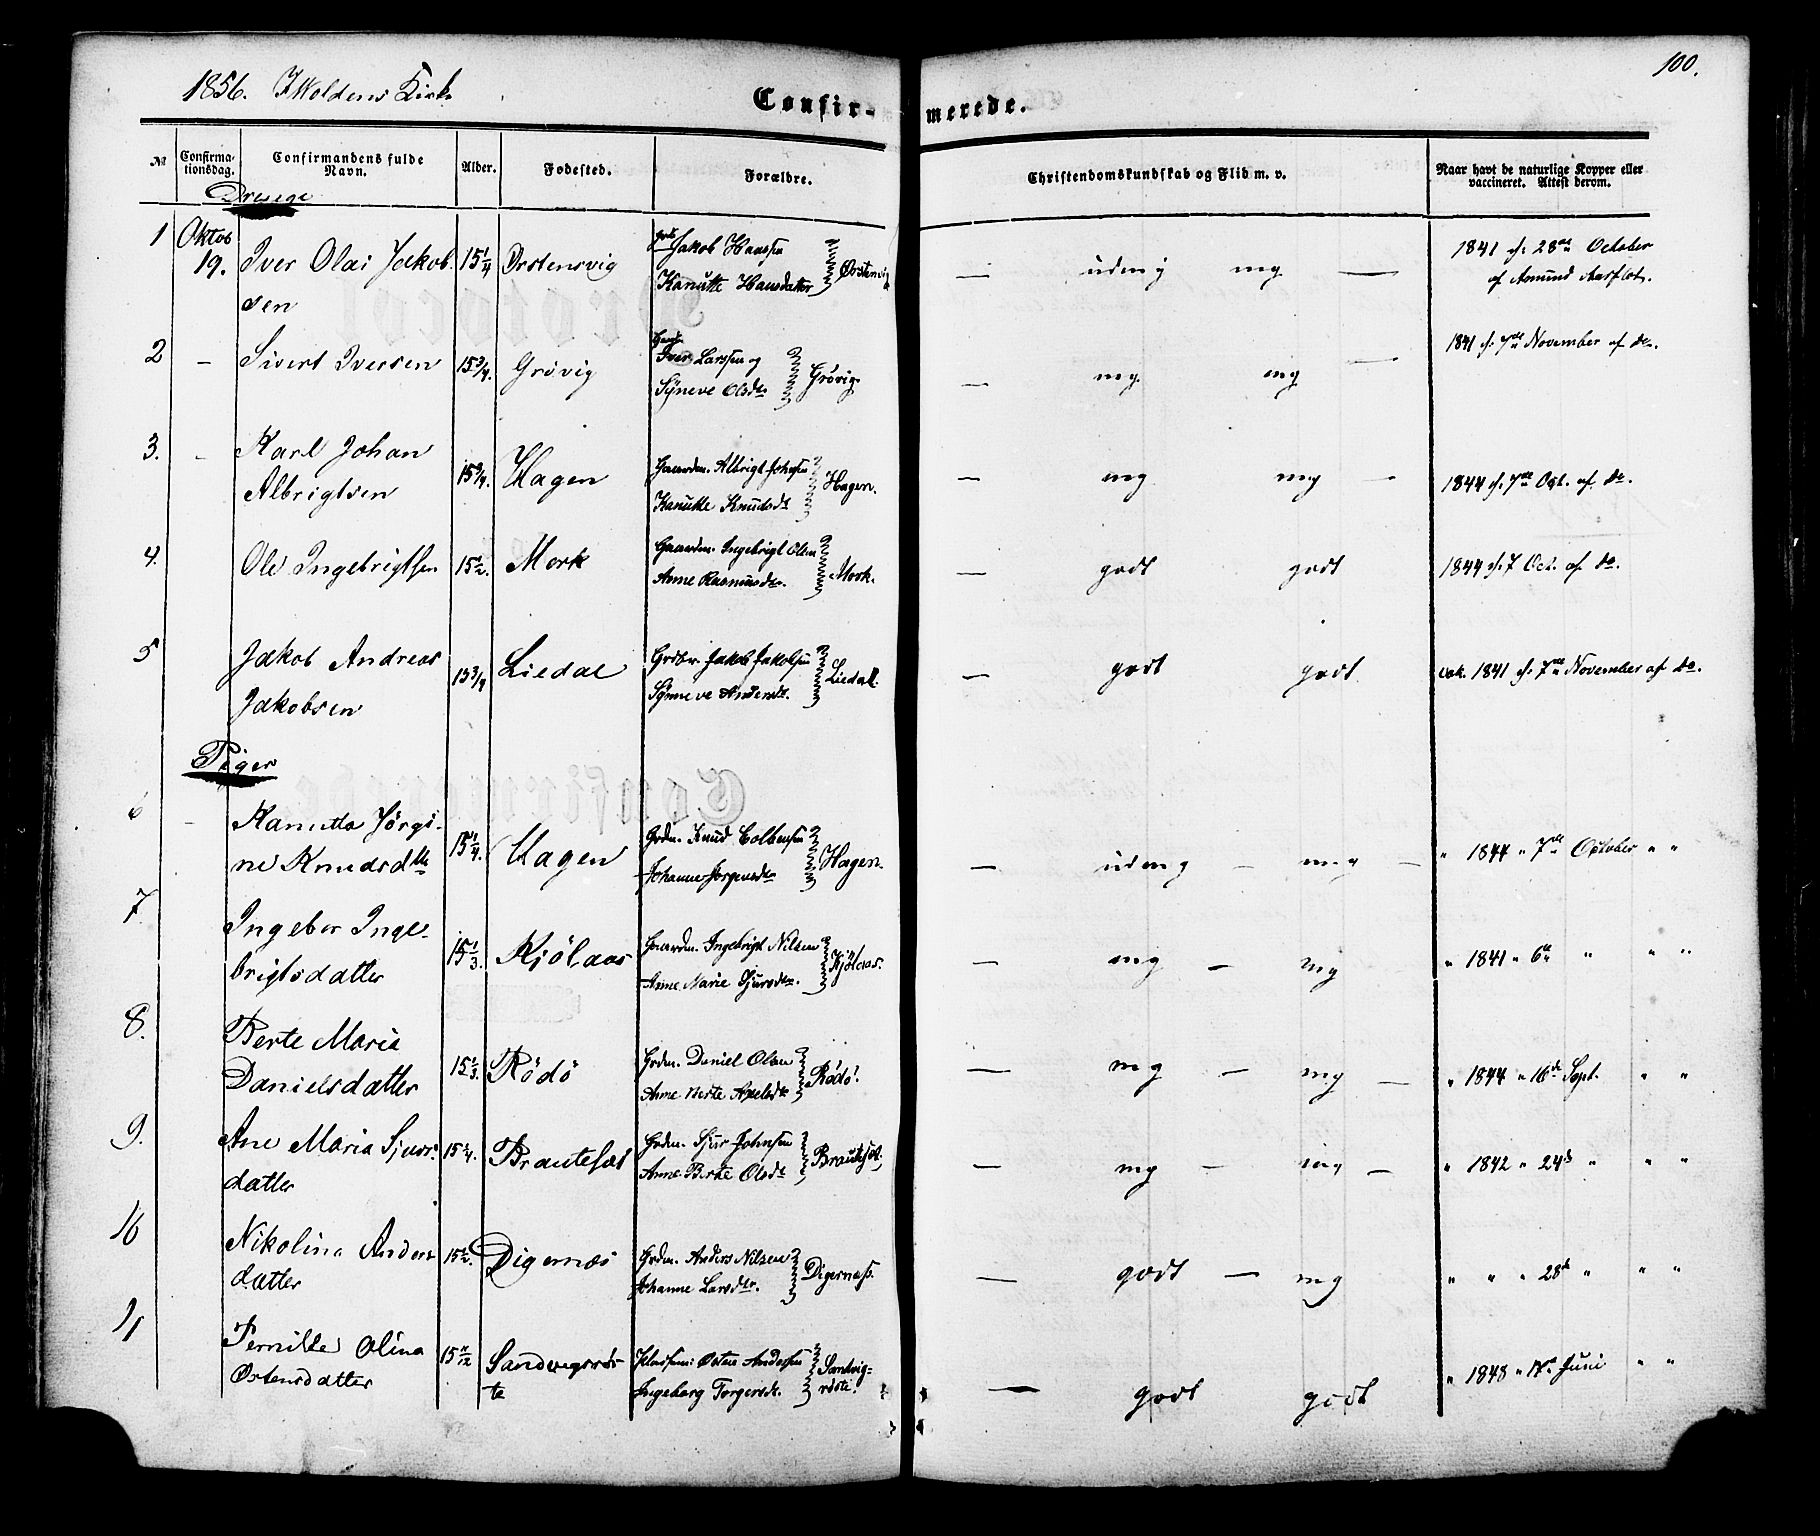 100.
1856. I Woldens Kirke
Confir- merede.
№ Confirma-tionsdag. Confirmandens fulde Navn. Alder. Fødested. Forældre. Christendomskundskab og Flid m. v. Naar havt de naturlige Kopper eller vaccineret. Attest derom.
Drenge
1 Oktob 19. Iver Olai Jakob sen 15 1/4 Ørstensvig Jakob Hansen Kanutte Hansdatter Ørstensvig — udm mg — 1841 d. 28de October af Amund Aarflot.
2 — Sivert Iversen 15 3/4. Grøvig Iver Larssen og Syneve Olsdr Grøvig. — mg. mg — 1841 d. 7de November af do.
3. — Karl Johan Albrigtsen 15 3/4. Hagen Gaardm. Albrigt Johnsen Kanutte Knudsdr Hagen. — mg mg — 1844 d. 7de Oct. af do.
4. Ole Ingebrigtsen 15 1/2. Mork Gaardm. Ingebrigt Olsen Anne Rasmusdr. Mork. — godt godt 1844 d. 7 Oct. af do.
5 Jakob Andreas Jakobsen 15 3/4 Liedal Jakob Jakobsen Synneve Andersdr. Liedal. — godt godt vak. 1841 d. 7de November af do.
Piger
6 — Kanutta Jørgi-ne Knudsdtr 15 1/4. Hagen Grdm. Knud Colbensen Johanne Jørgensdr Hagen. — udmg — mg — " 1844 " 7de October " "
7 Ingebor Inge-brigtsdatter 15 1/3. Kjölaas Gaardm. Ingebrigt Nilsen Anne Marie Sjursdr. Kjölaas. — mg — mg " 1841 " 6te " " "
8. Berte Maria Danielsdatter 15 1/3. Rödö Grdm. Daniel Olsen Anne Berte Axelsdr Rödö. — mg — mg — " 1844 " 16de Sept. " "
9. Ane Maria Sjurs datter 15 1/4. Brauteset Grdm. Sjur Johnsen Anne Berte Olsdr Brauteset. — mg — mg — " 1842 " 24de " " "
10 Nikolina Anders datter 15 1/2. Digernæs Grdm. Anders Nilsen Johanne Larsdr. Digernæs. — godt — mg " " " 28de " " "
11 Pernille Olina Østensdatter 15 11/12 Sandvigsrös-te Østen Andersen Ingeborg Torgersdr. Sandvig-röste. — godt godt " 1848 " 17de Juni " "